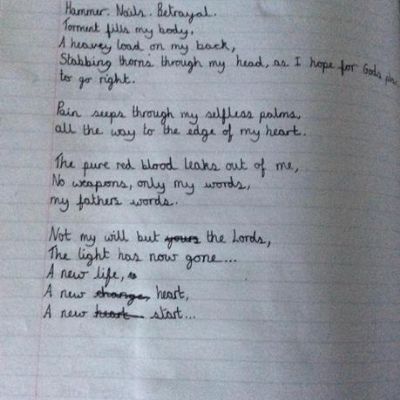 Hammer. Nails. Betrayal.
Torment fills my body,
A heavey load on my back,
Stabbing thorns through my head, as I hope for God's plan
to go right.
Pain seeps through my selfless palms,
all the way to the edge of my heart.
The pure red blood leaks out of me,
No weapons, only my words,
my fathers words.
Not my will but yours the Lords,
The light has now gone...
A new life,
A new change, heart,
A new heart start...